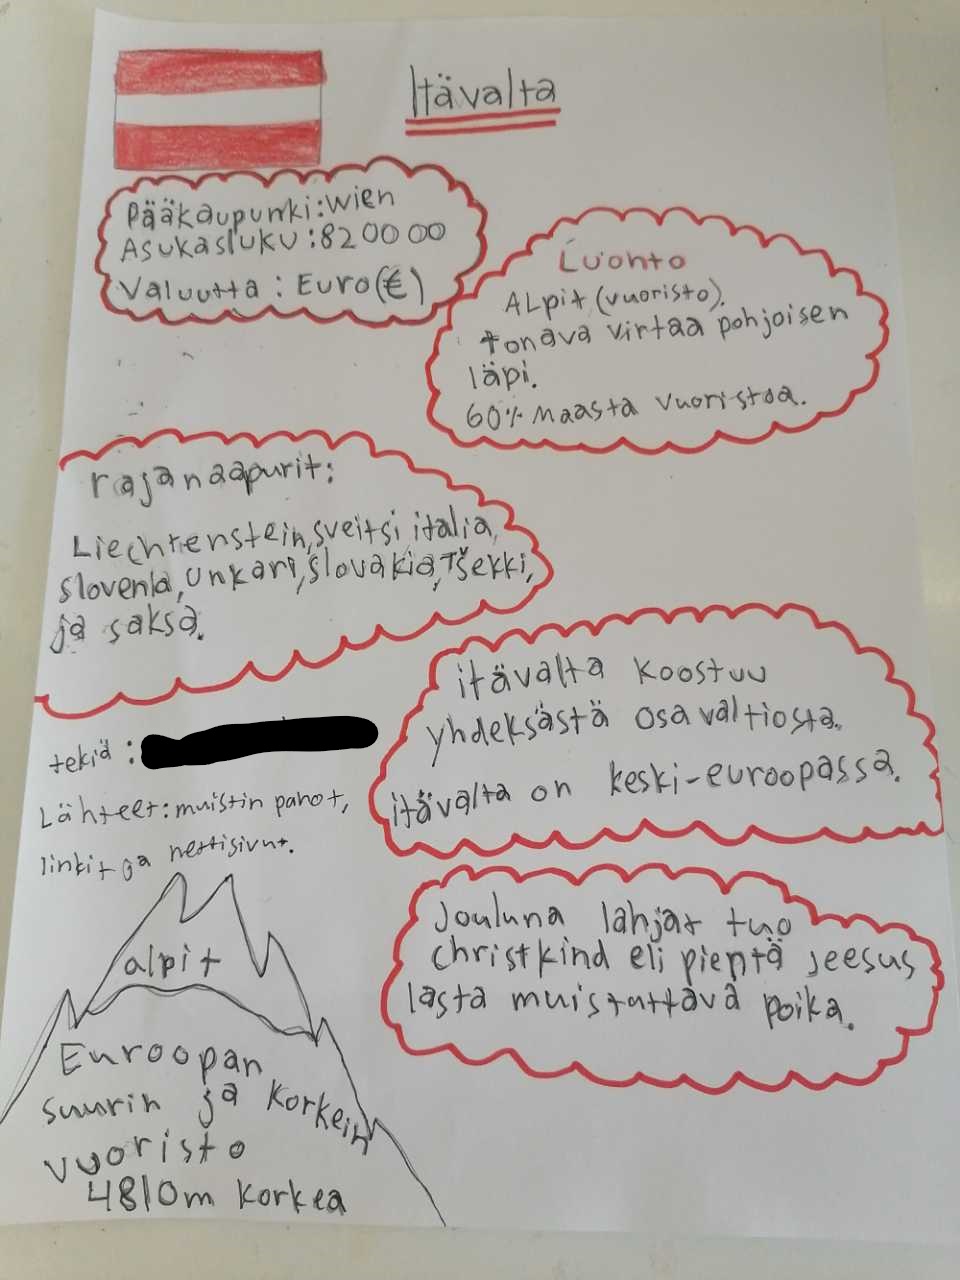 Itävalta
Pääkaupunki: Wien
Asukasluku: 8200000
Valuutta: Euro(€)
Luonto
ALpit (vuoristo).
tonava virtaa pohjoisen
läpi.
60% Maasta vuoristoa.
rajanaapurit:
Liechtenstein, sveitsi italia,
slovenia, unkari, slovakia, Tšekki,
ja saksa.
itävalta koostuu
yhdeksästä osavaltiosta.
itävalta on keski-euroopassa.
tekiä:
Lähteet: muistin panot,
linkit ja nettisivut.
Jouluna lahjat tuo
christkind eli pientä jeesus
lasta muistuttava poika.
alpit
Euroopan
suurin ja korkein
vuoristo
4810m korkea